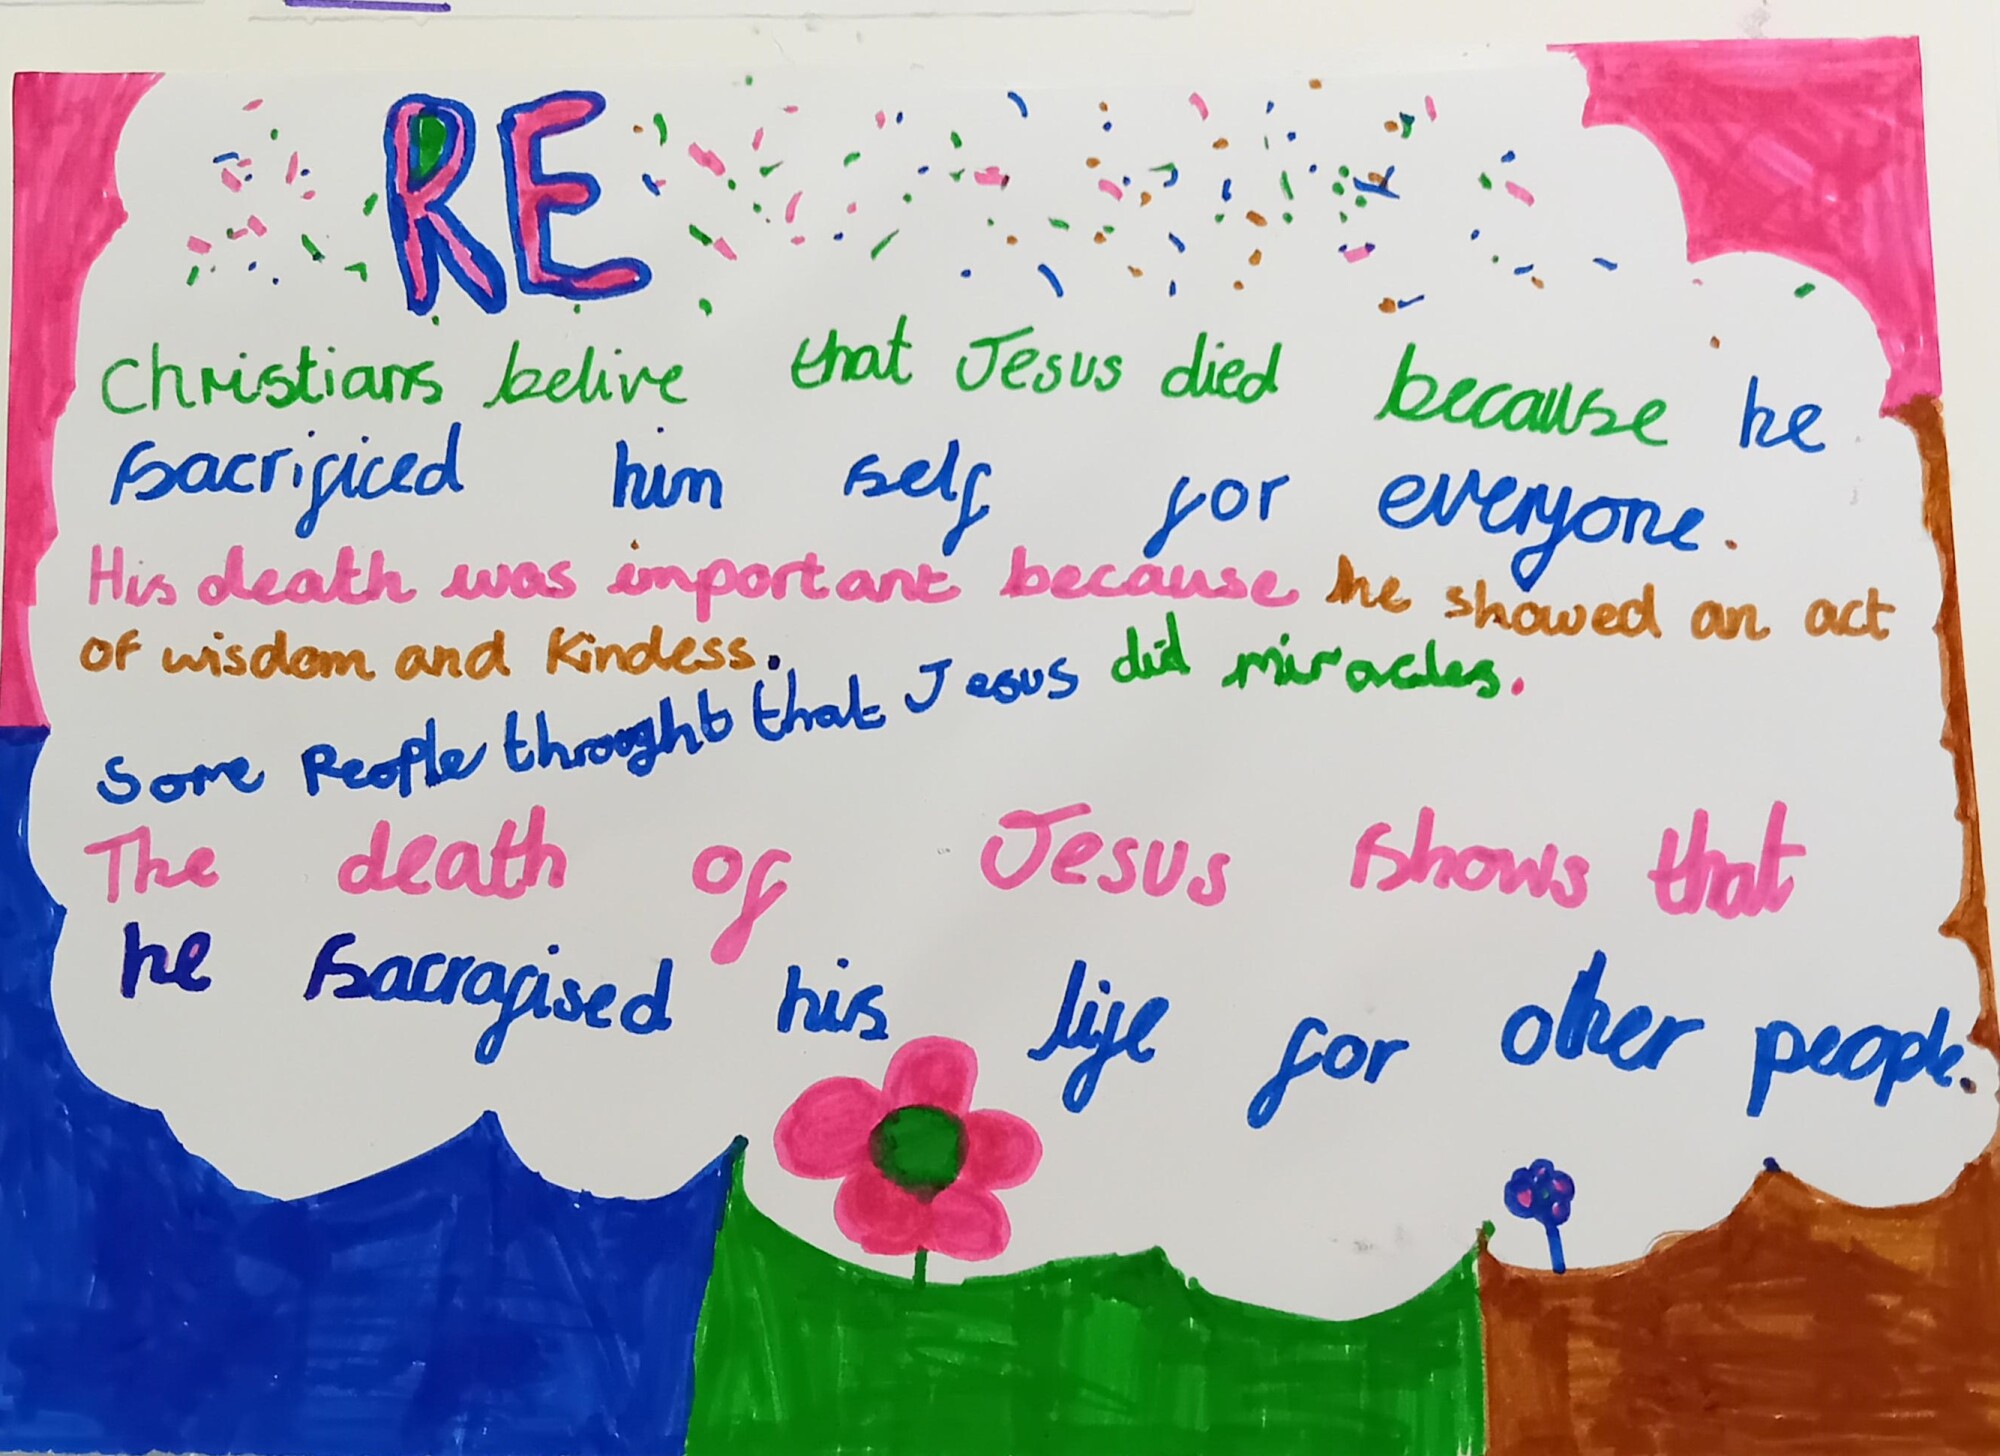 RE
Christians belive that Jesus died because he
sacrificed him self for everyone.
His death was important because he showed an act
of wisdom and kindess.
Some People throught that Jesus did miracles.
The death of Jesus shows that
he sacrafised his life for other people.